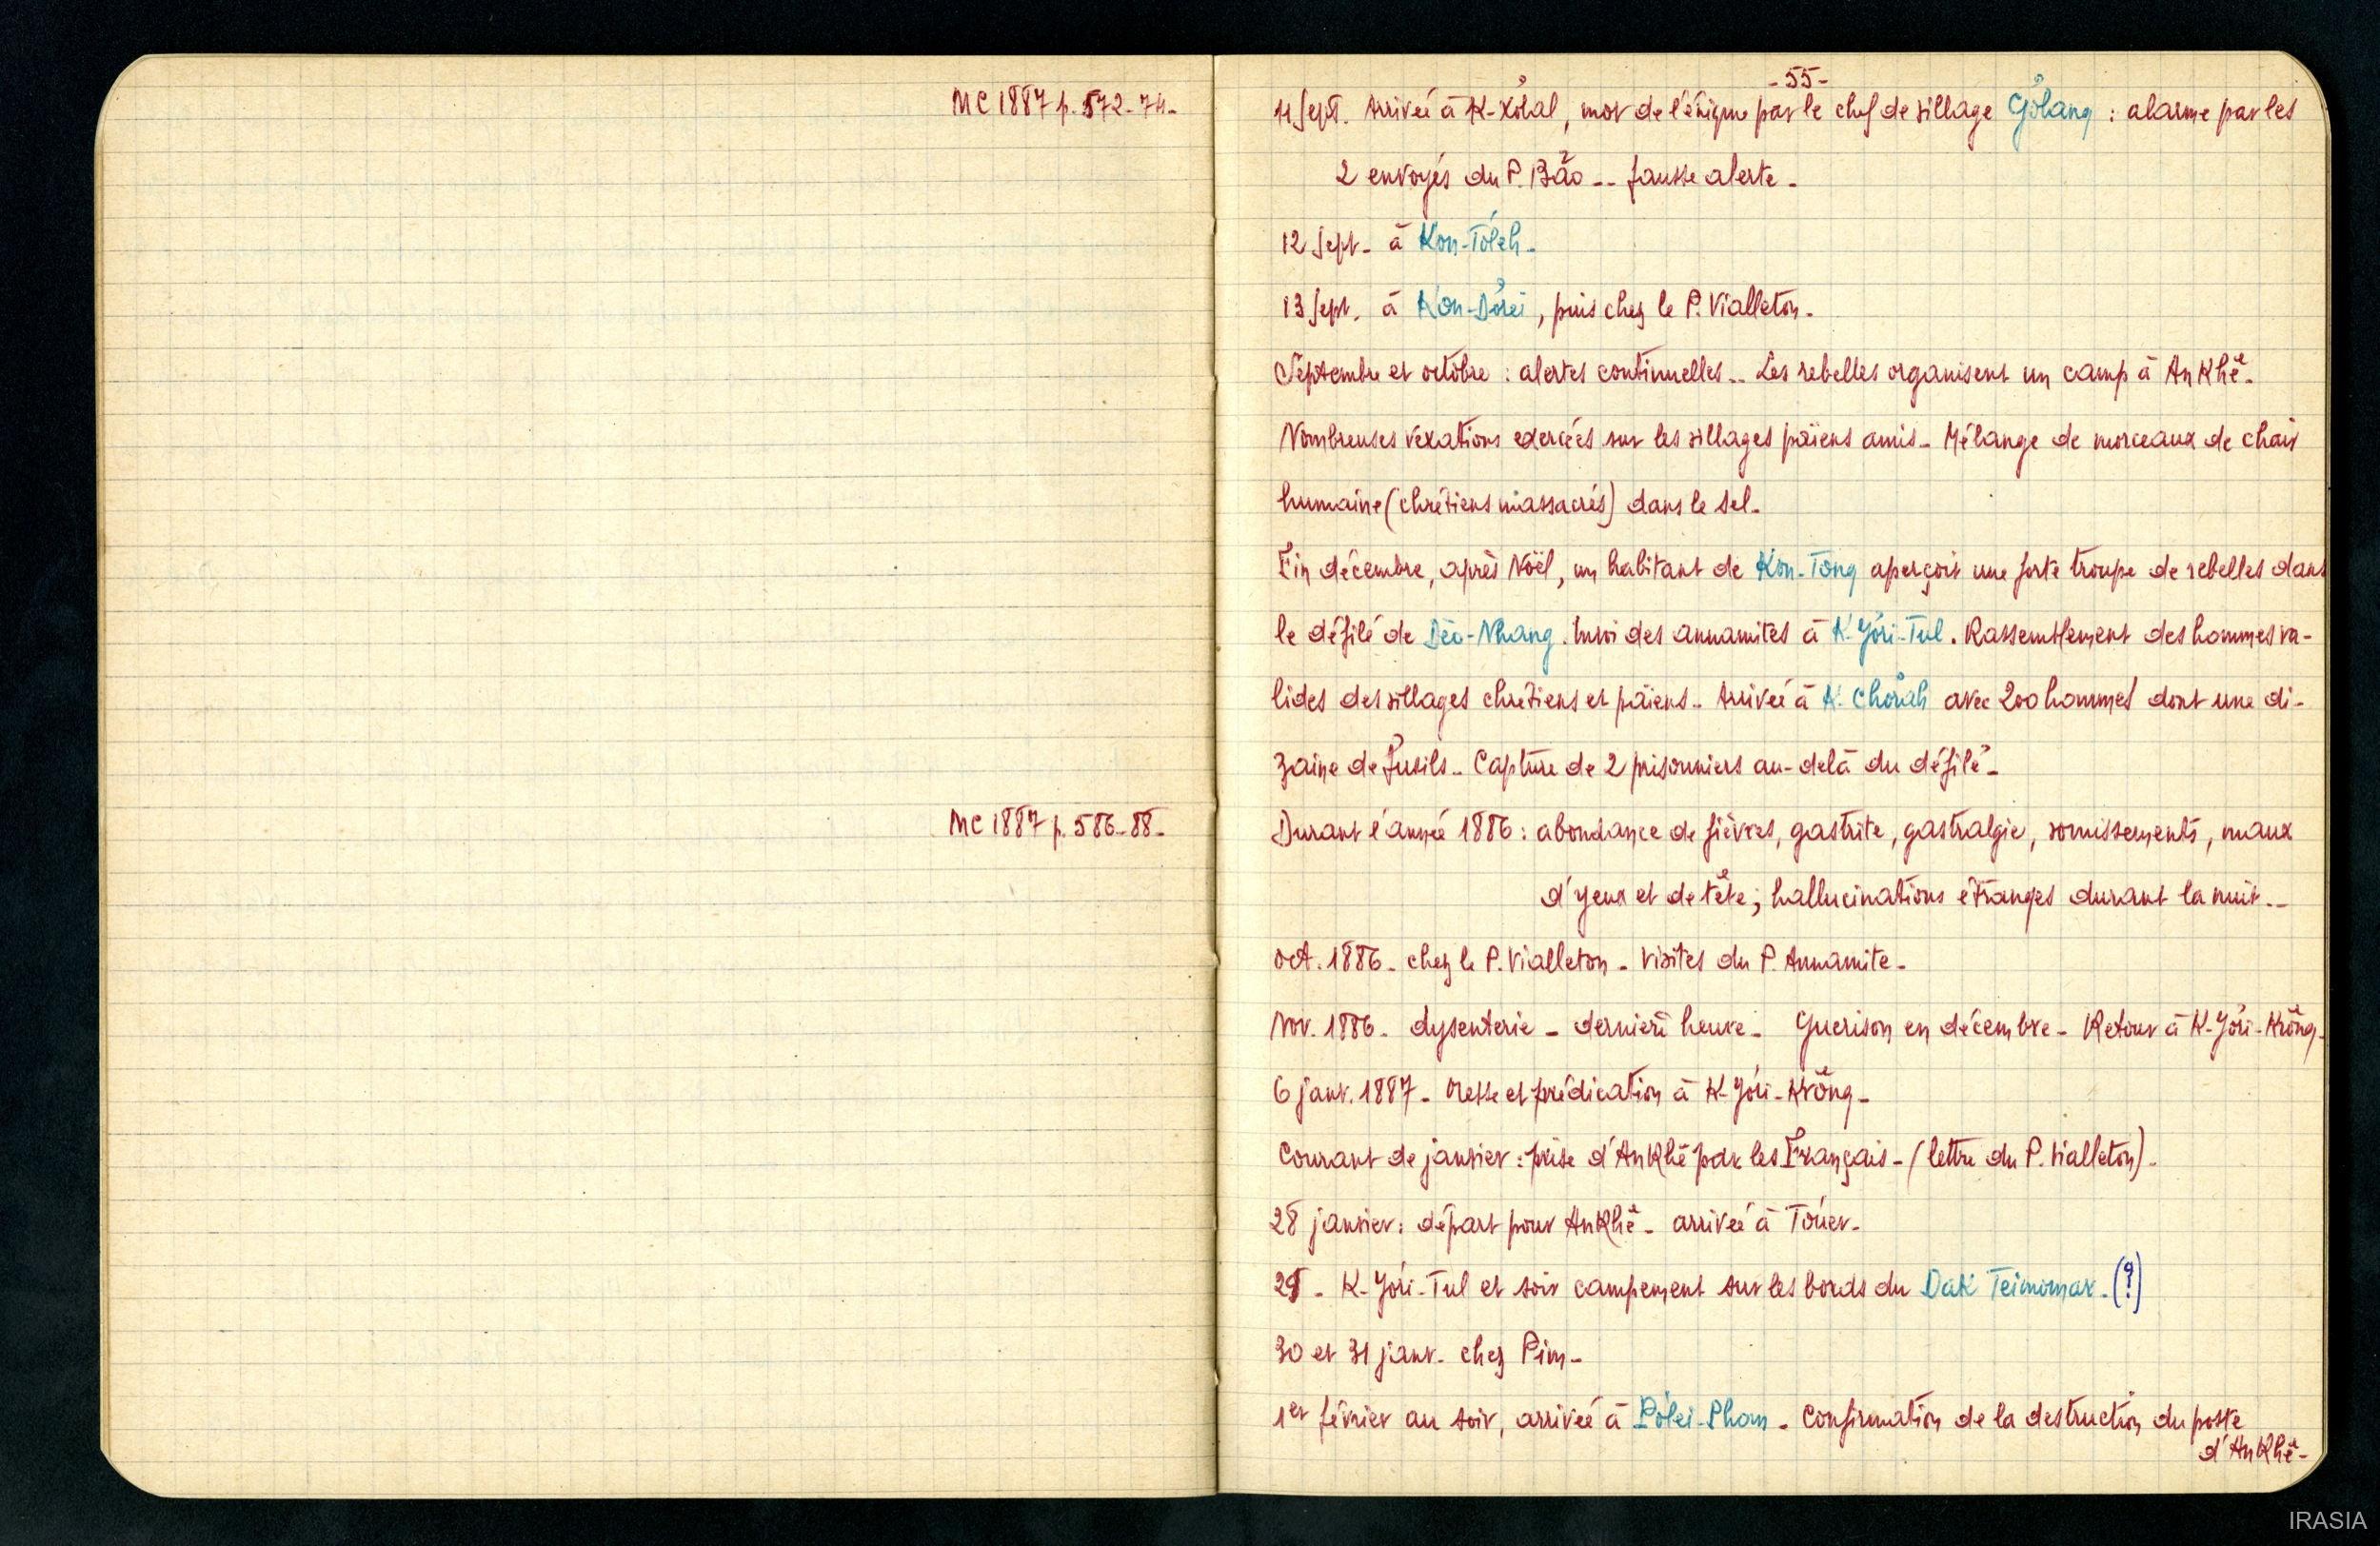 MC 1887 p. 572-74-
- 55 -
11 sept. Arrivée à K-Xơlal, mot de l'énigme par le chef de village Gơlang : alarme par les
2 envoyés du P. Bảo -- fausse alerte -
12 sept- à Kon-Tơleh-
13 sept. à Kon-Dơrei, puis chez le P. Vialleton.
Septembre et octobre : alertes continuelles -- Les rebelles organisent un camp à An Khê-
Nombreuses vexations exercées sur les villages païens amis- Mélange de morceaux de chair
humaine (chrétiens massacrés) dans le sel-
Fin décembre, après Noël, un habitant de Kon-Tong aperçoit une forte troupe de rebelles dans
le défilé de Dèo-Nhang. Envoi des annamites à K-Jơri-Tul. Rassemblement des hommes va-
lides des villages chrétiens et païens -- Arrivée à K. Chơrah avec 200 hommes dont une di-
zaine de fusils -- Capture de 2 prisonniers au-delà du défilé-
MC 1887 p. 586-88-
Durant l'année 1886 : abondance de fièvres, gastrite, gastralgie, vomissements, maux
d'yeux et de tête ; hallucinations étranges durant la nuit --
oct. 1886- chez le P. Vialleton - visites du P. Annamite-
Nov. 1886- dysenterie - dernière heure- Guerison en décembre- Retour à K-Jơri-Krông-
6 janv. 1887- Messe et prédication à K-Jơri-Krông-
Courant de janvier : prise d'An Khê par les Français - (lettre du P. Vialleton)-
28 janvier : départ pour An Khê- arrivée à Tơuer-
29- K-Jơri-Tul et soir campement sur les bords du Dak Teimomar- (?)
30 et 31 janv- chez Pim-
1er février au soir, arrivée à Pơlei-Pham - Confirmation de la destruction du poste
d'An Khê-
IRASIA